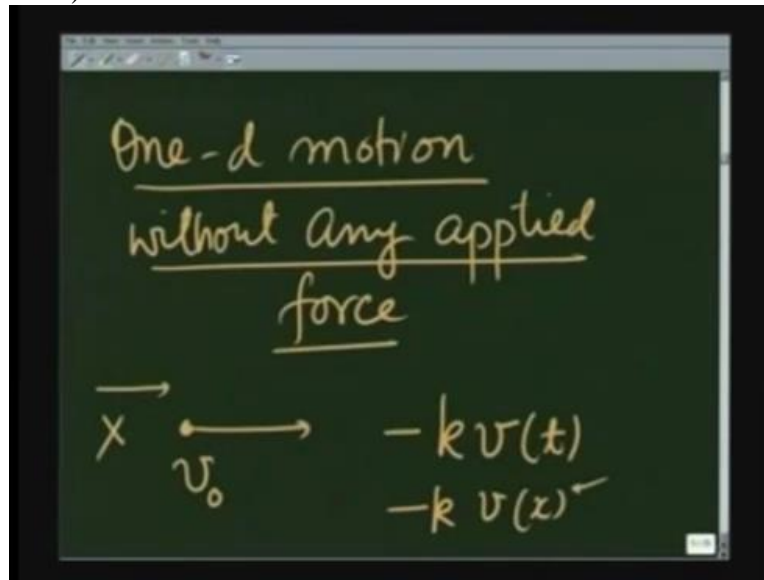 One-d motion
without any applied
force
X v₀ -k v(t)
-k v(x)